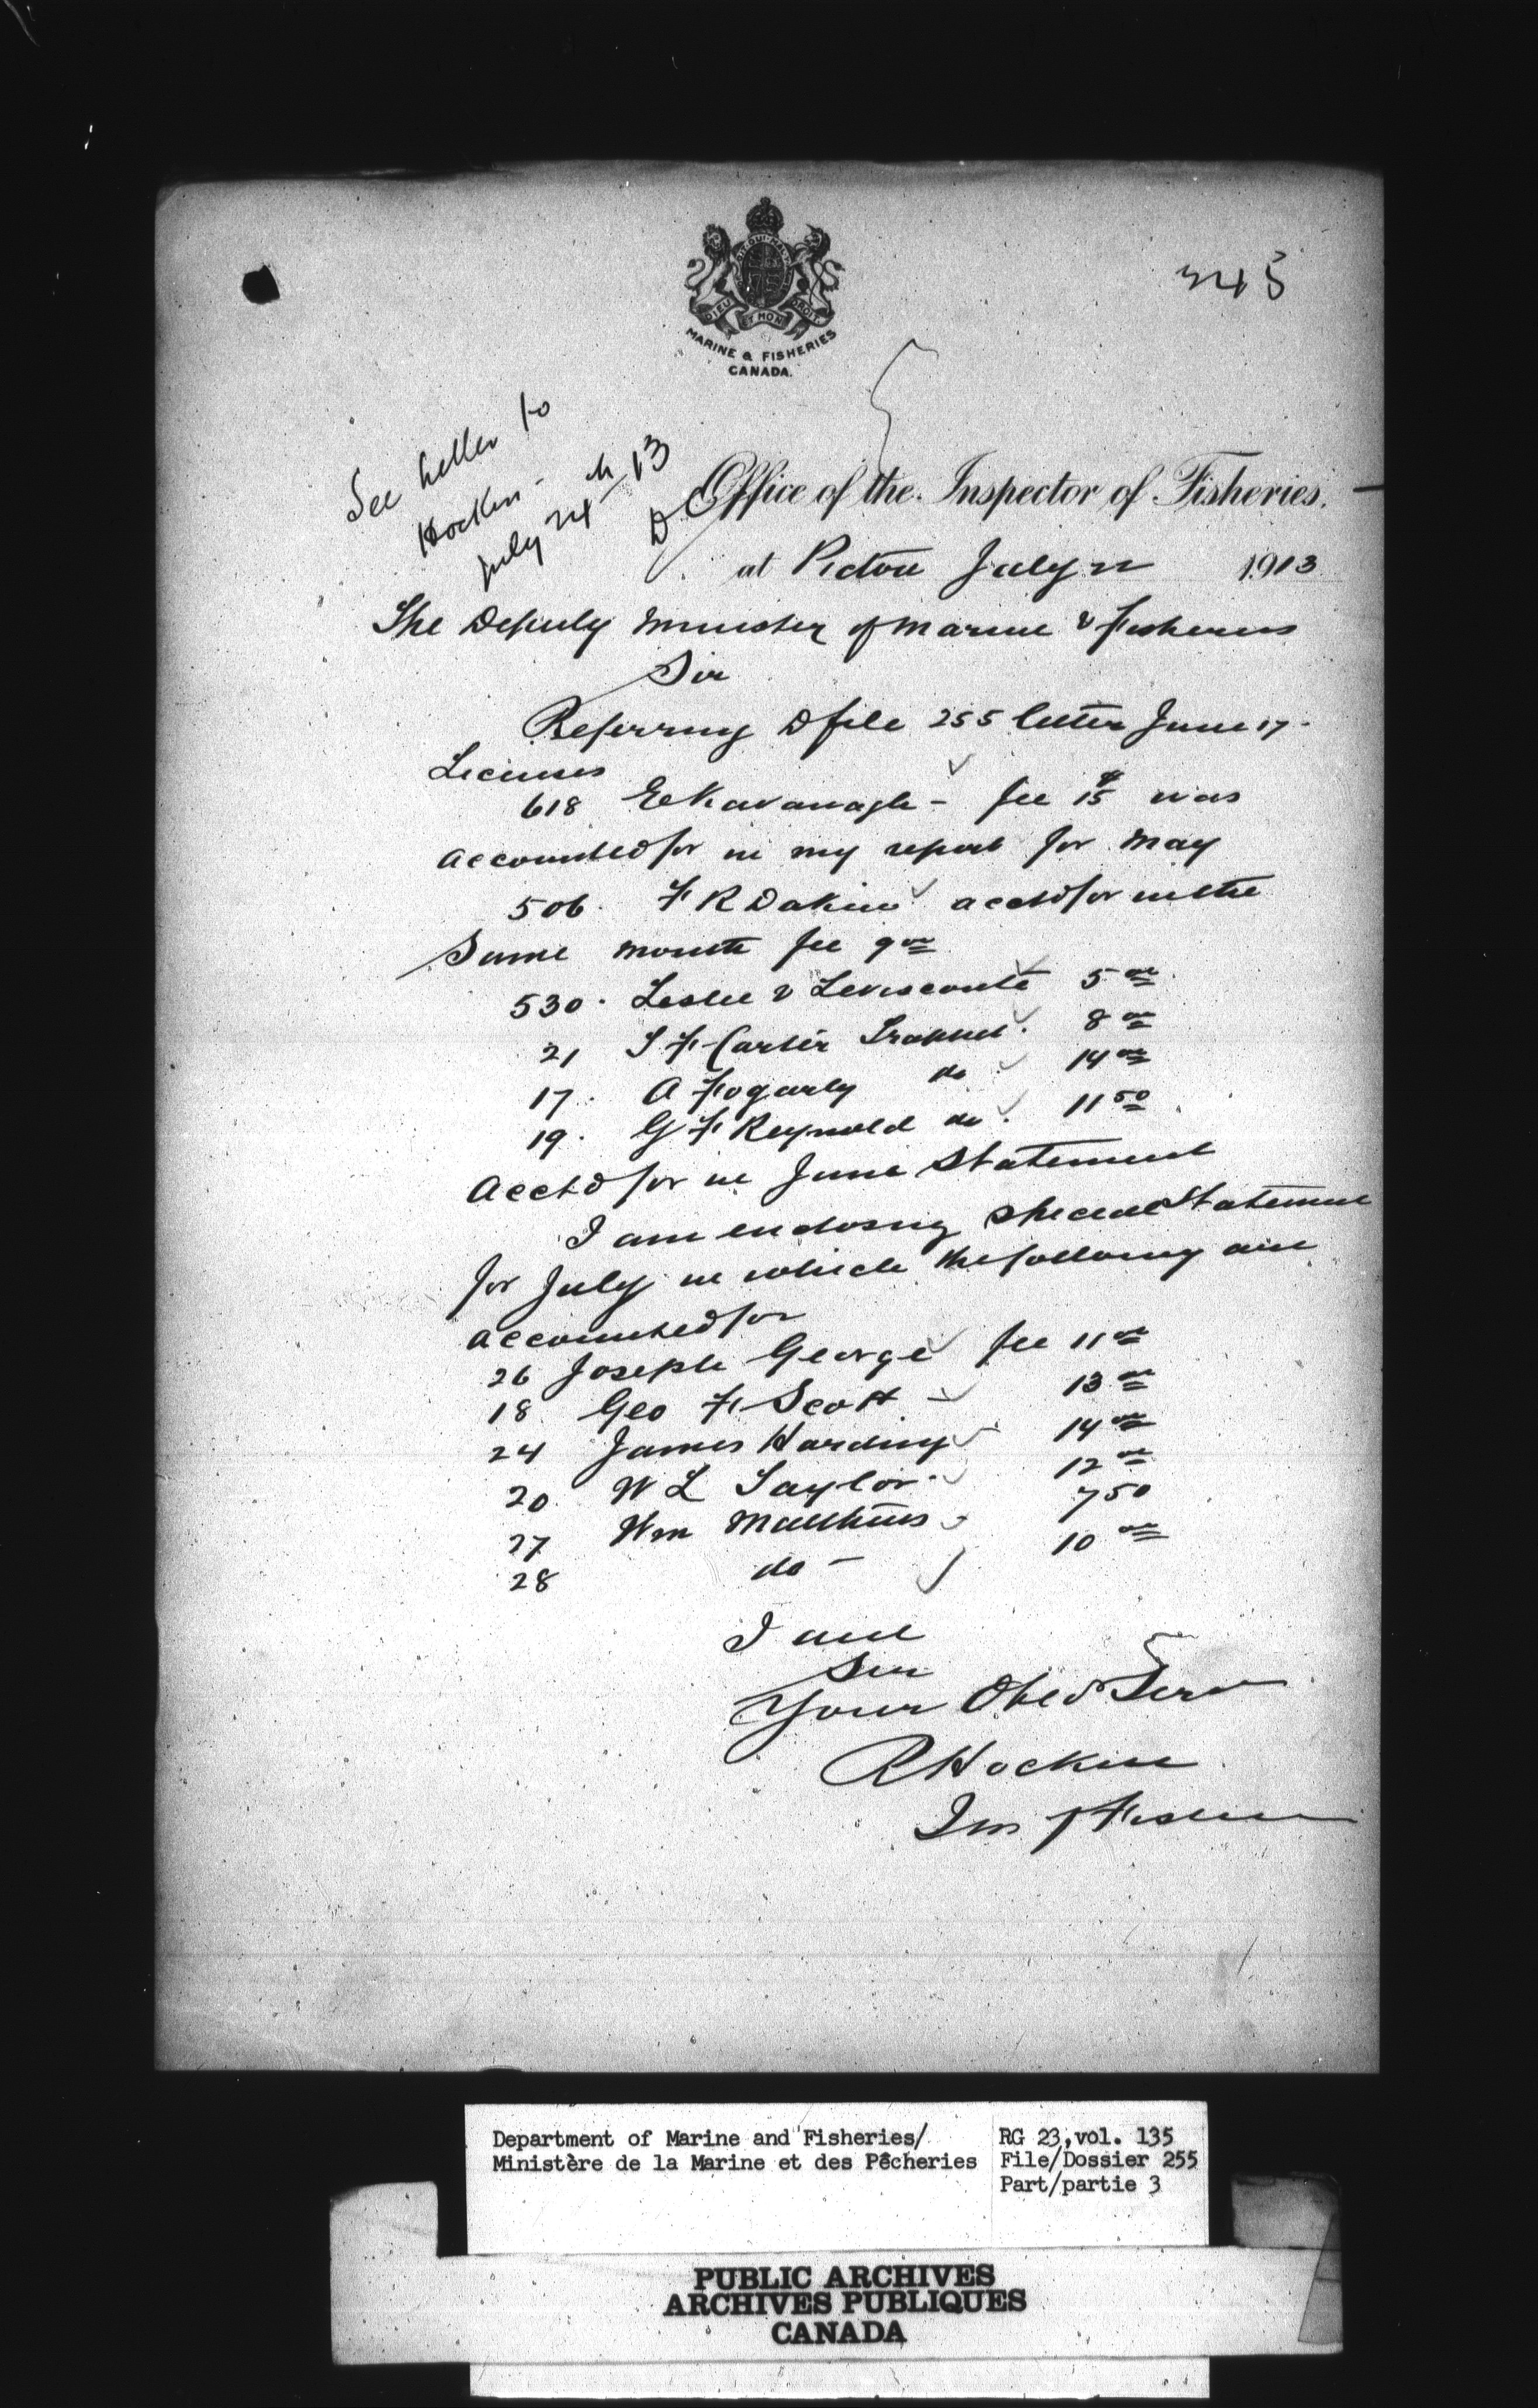 345
DIEU ET MON DROIT
MARINE & FISHERIES
CANADA.
See letter to
Hockin -
July 24th 13
D
Office of the Inspector of Fisheries.
at Pictou July 22 1913
The Deputy Minister of Marine & Fisheries
Sir
Referring D file 255 letter June 17 -
Licenses
618 E Kavanagh - fee 15 $ was
accounted for in my report for May
506. F R Dakin acctd for in the
Same month fee 9 00
530. Leslie & Levesconte 5 00
21 S F Carter Trapnet. 8 00
17. A Fogarty do 14 00
19. G F Reynold do. 11 50
Acctd for in June Statement
I am enclosing special Statement
for July in which the following are
accounted for
26 Joseph George fee 11 00
18 Geo F Scott - 13 00
24 James Harding 14 00
20 W L Taylor. 12 00
27 Wm Matthews 7 50
28 do - 10 00
I am
Sir
Your Obed Serv
R Hockin
Ins of Fisheries
Department of Marine and Fisheries/
Ministère de la Marine et des Pêcheries
RG 23, vol. 135
File/Dossier 255
Part/partie 3
PUBLIC ARCHIVES
ARCHIVES PUBLIQUES
CANADA